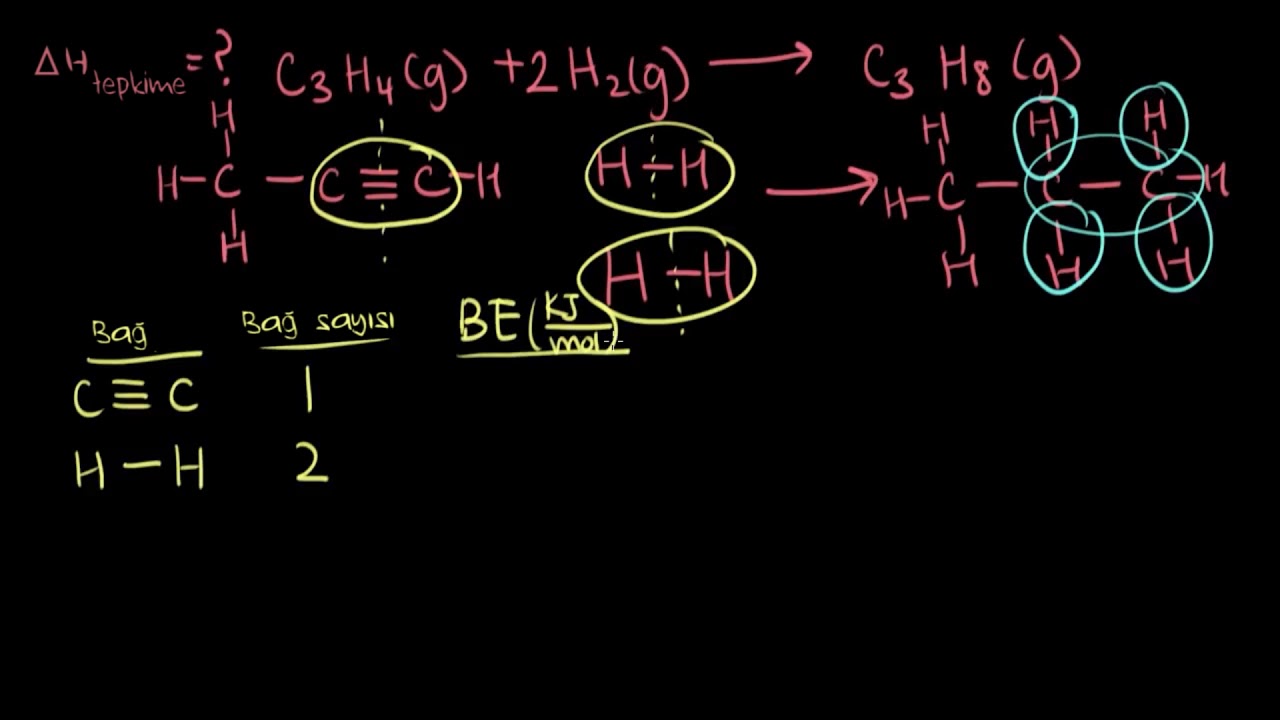 ΔH tepkime = ? C₃H₄(g) + 2H₂(g) → C₃H₈(g)
H H H H
H – C – C ≡ C – H H – H → H – C – C – C – H
H H – H H H H
Bağ Bağ sayısı BE (KJ/mol)
C ≡ C 1
H – H 2